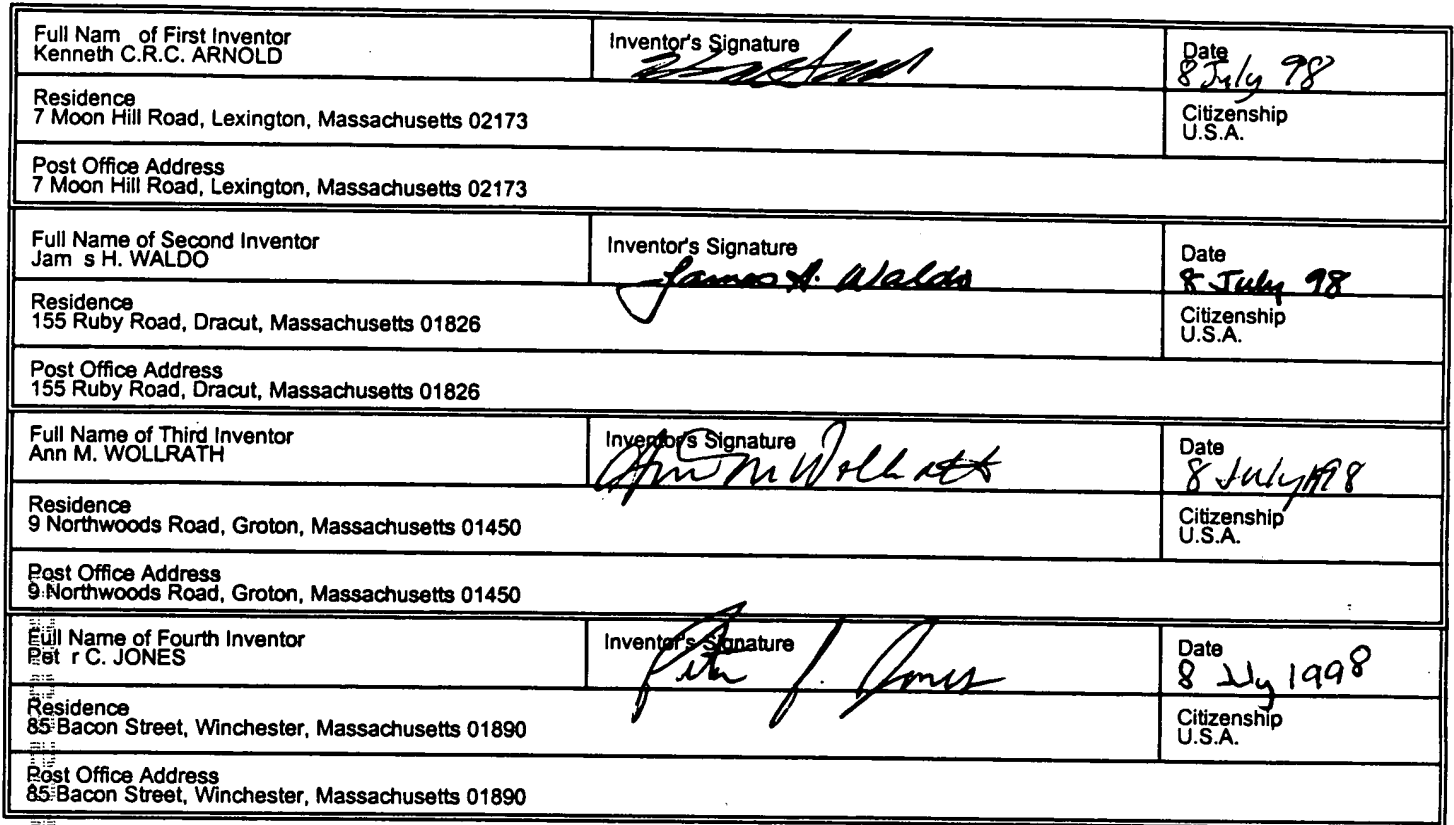 Full Nam of First Inventor
Kenneth C.R.C. ARNOLD
Inventor's Signature
Date
8 July 98
Residence
7 Moon Hill Road, Lexington, Massachusetts 02173
Citizenship
U.S.A.
Post Office Address
7 Moon Hill Road, Lexington, Massachusetts 02173
Full Name of Second Inventor
Jam s H. WALDO
Inventor's Signature
James H. Waldo
Date
8 July 98
Residence
155 Ruby Road, Dracut, Massachusetts 01826
Citizenship
U.S.A.
Post Office Address
155 Ruby Road, Dracut, Massachusetts 01826
Full Name of Third Inventor
Ann M. WOLLRATH
Inventor's Signature
Ann M Wollrath
Date
8 July 1998
Residence
9 Northwoods Road, Groton, Massachusetts 01450
Citizenship
U.S.A.
Post Office Address
9 Northwoods Road, Groton, Massachusetts 01450
Full Name of Fourth Inventor
Pet r C. JONES
Inventor's Signature
Jones
Date
8 July 1998
Residence
85 Bacon Street, Winchester, Massachusetts 01890
Citizenship
U.S.A.
Post Office Address
85 Bacon Street, Winchester, Massachusetts 01890